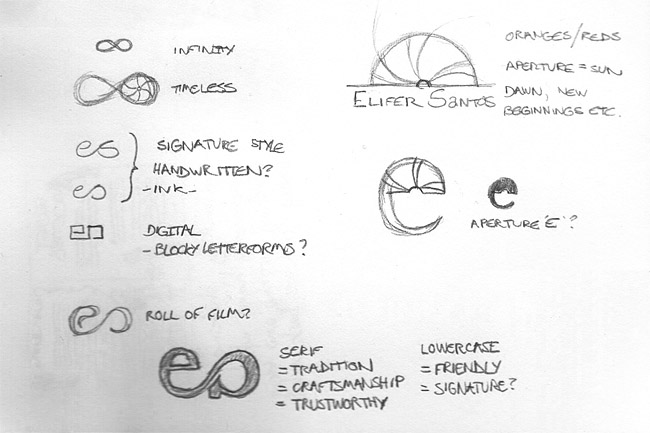 INFINITY
TIMELESS
es
SIGNATURE STYLE
HANDWRITTEN?
- INK -
es
DIGITAL
- BLOCKY LETTERFORMS?
ROLL OF FILM?
es
SERIF
= TRADITION
= CRAFTSMANSHIP
= TRUSTWORTHY
LOWERCASE
= FRIENDLY
= SIGNATURE?
ELIFER SANTOS
ORANGES/REDS
APERTURE = SUN
DAWN, NEW
BEGINNINGS ETC.
e
e
APERTURE 'E'?